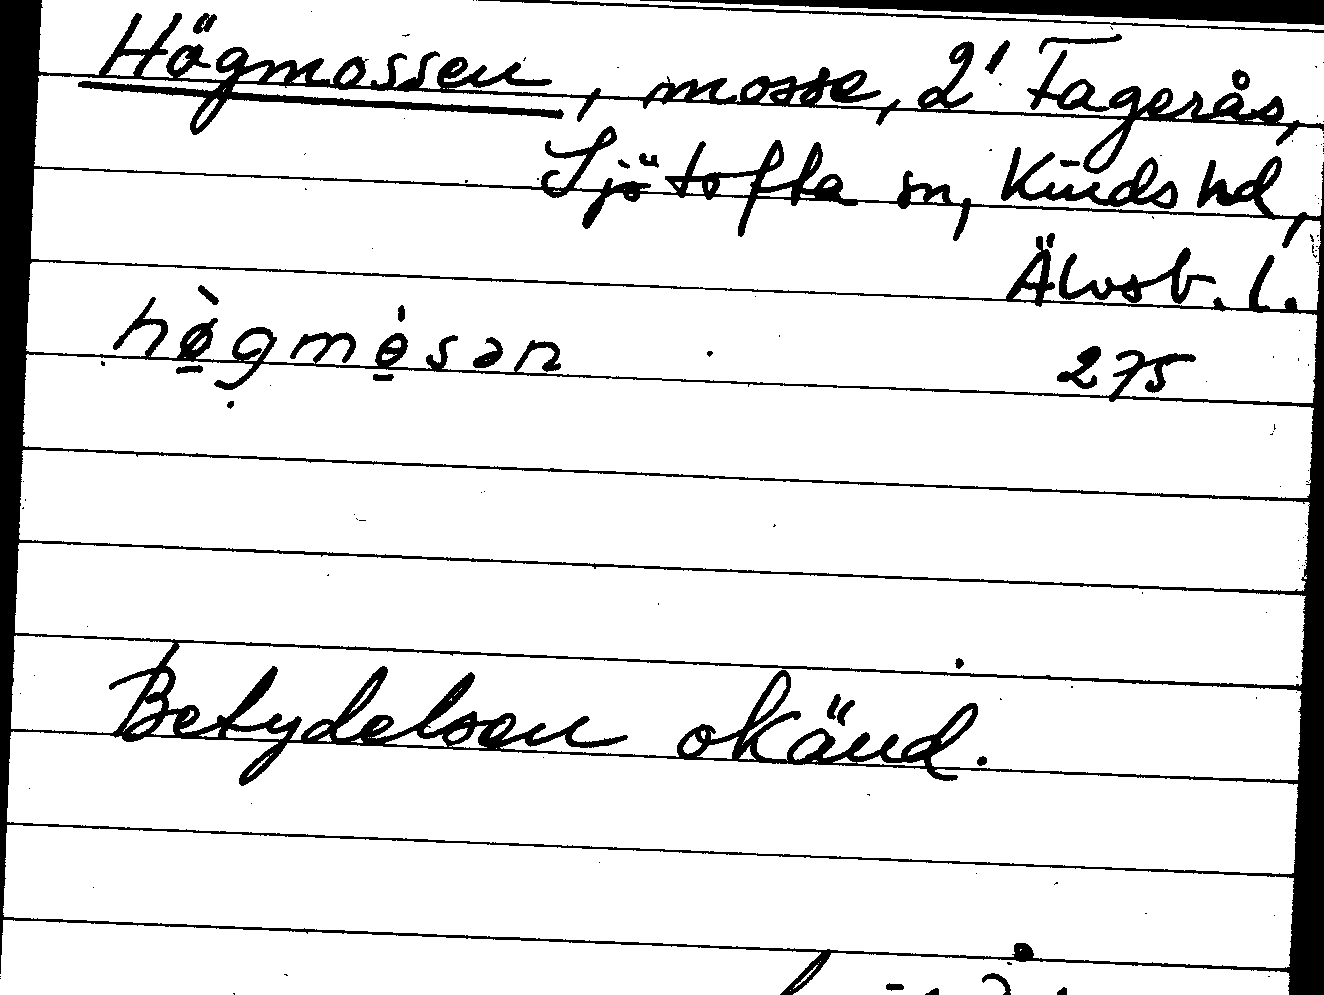 Högmossen, mosse, 2' Fagerås,
Sjötofta sn, Kinds hd,
Älvsb. l.
hø̱̀gmɵ̱́sən 275
Betydelsen okänd.